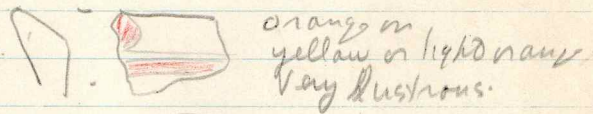 orange on
yellow or light orange
Very lustrous.